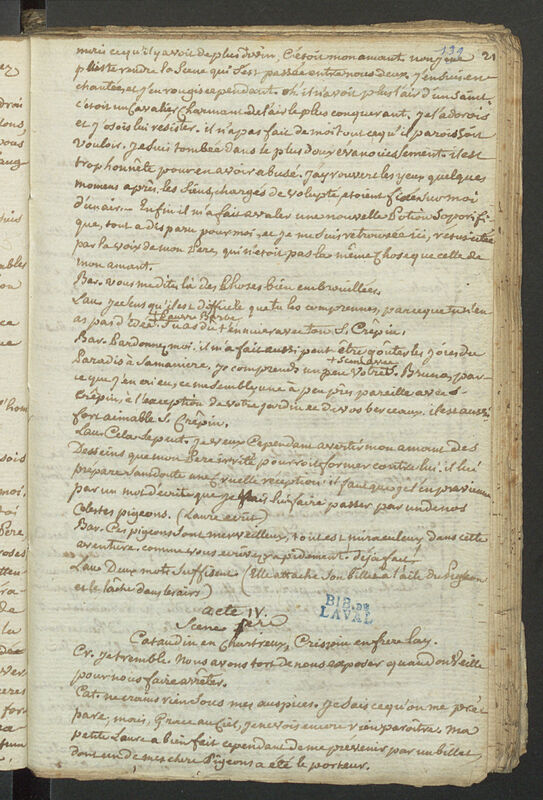 139 21
mais ce qu'il y avoit de plus divin, C'étoit mon amant. non, je ne
puis te rendre la Scene qui S'est passée entre nous deux, j'en suis en
chantée, et j'en rougis cependant. oh, il n'avoit plus l'air d'un Saint
c'étoit un Cavalier Charmant de l'air le plus conquerant. je l'adorois
et j'osois lui resister. il n'a pas fait de moi tout ce qu'il paroissoit
vouloir. je suis tombée dans le plus doux evanouissement. il est
trop honnête pour en avoir abusé. j'ay rouvert les yeux quelques
momens après. les Siens, chargés de volupté, etoient fixés Sur moi
d'un air... Enfin il m'a fait avaler une nouvelle Potion Soporifi
que, tout a disparu pour moi, et je me suis retrouvée ici, ressuscitée
par la voix de mon Pere, qui n'étoit pas la même chose que celle de
mon amant.
Bar. vous me dites là des choses bien embrouillées.
Lau. Je sens qu'il est difficile que tu les comprennes, parce que tu n'en
as pas d'idée. + Tu as du t'ennuier avec ton S. Crepin.
+ pauvre Barbe
Bar. Pardonnez moi. il m'a fait aussi peut être goûter les joies du
Paradis à sa maniere. Je comprends un peu votre S. Bruno, par-
+ Scenbarre
ce que j'en ai eu, ce me semble, une à peu près pareille avec S.
Crêpin, à l'exception de votre jardin et de vos berceaux. il est aussi
fort aimable S. Crêpin.
Lau. Cela se peut. je veux cependant avertir mon amant des
Desseins que mon Pere irrité pourroit former contre lui. il lui
prepare Sans doute une Cruelle reception. il faut que je l'en previenne
par un mot d'écrit que je vais lui faire passer par un de nos
Celestes pigeons. (Laure ecrit)
Bar. Ces pigeons sont merveilleux, tout est miraculeux dans cette
aventure. comme vous ecrivez rapidement. déja fait!
Lau. Deux mots Suffisent. (Elle attache Son billet à l'aile du Pigeon
et le lâche dans les airs)
BIB. DE
LAVAL
acte IV.
Scene 1ere
Cataudin en Chartreux, Crispin en frere lay.
Cr. Je tremble. Nous avons tort de nous exposer quand on Veille
pour nous faire arrêter.
Cat. ne crains rien Sous mes auspices. je Sais ce qu'on me pré
pare, mais, Grace au Ciel, je ne vois encore rien paroître. Ma
petite Laure a bien fait cependant de me prevenir par un billet
dont un de mes chers Pigeons a été le porteur.